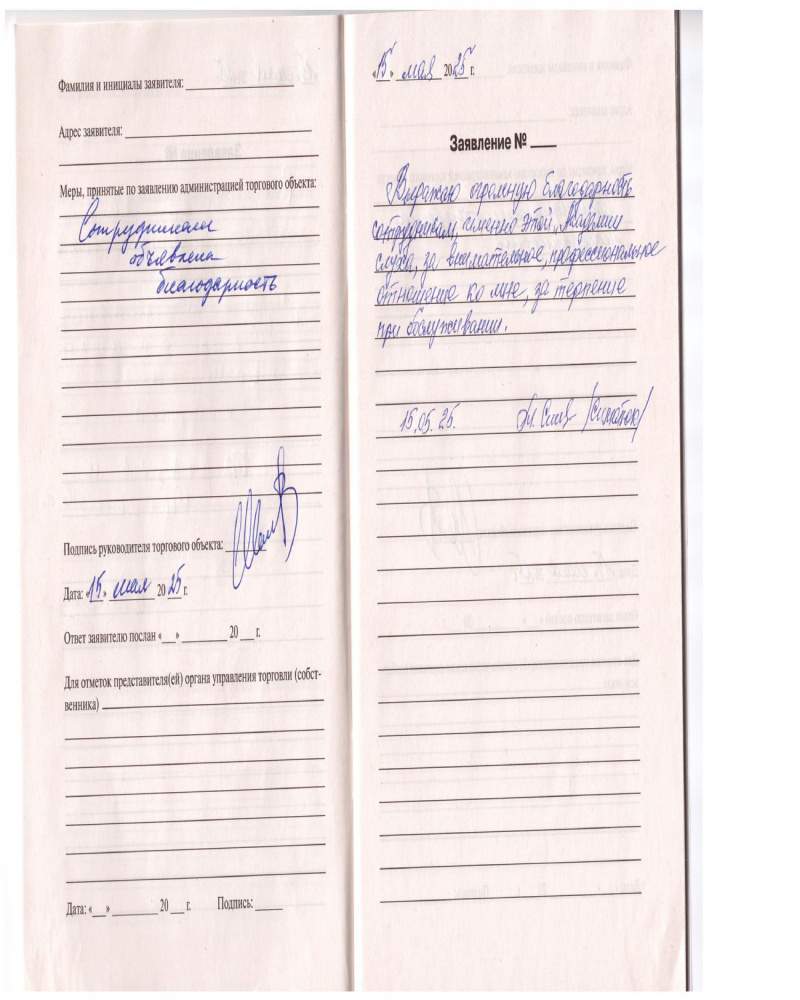 Фамилия и инициалы заявителя:
Адрес заявителя:
Меры, принятые по заявлению администрацией торгового объекта:
Сотрудникам
объявлена
благодарность
Подпись руководителя торгового объекта:
Дата: «15» мая 20 25 г.
Ответ заявителю послан «__» ______ 20 __ г.
Для отметок представителя(ей) органа управления торговли (собст-
венника)
Дата: «__» ______ 20 __ г. Подпись: ____
«15» мая 20 25 г.
Заявление № ___
Выражаю огромную благодарность
сотрудникам, именно этой, Академии
слуха, за внимательное, профессиональное
отношение ко мне, за терпение
при обслуживании.
15.05.25.